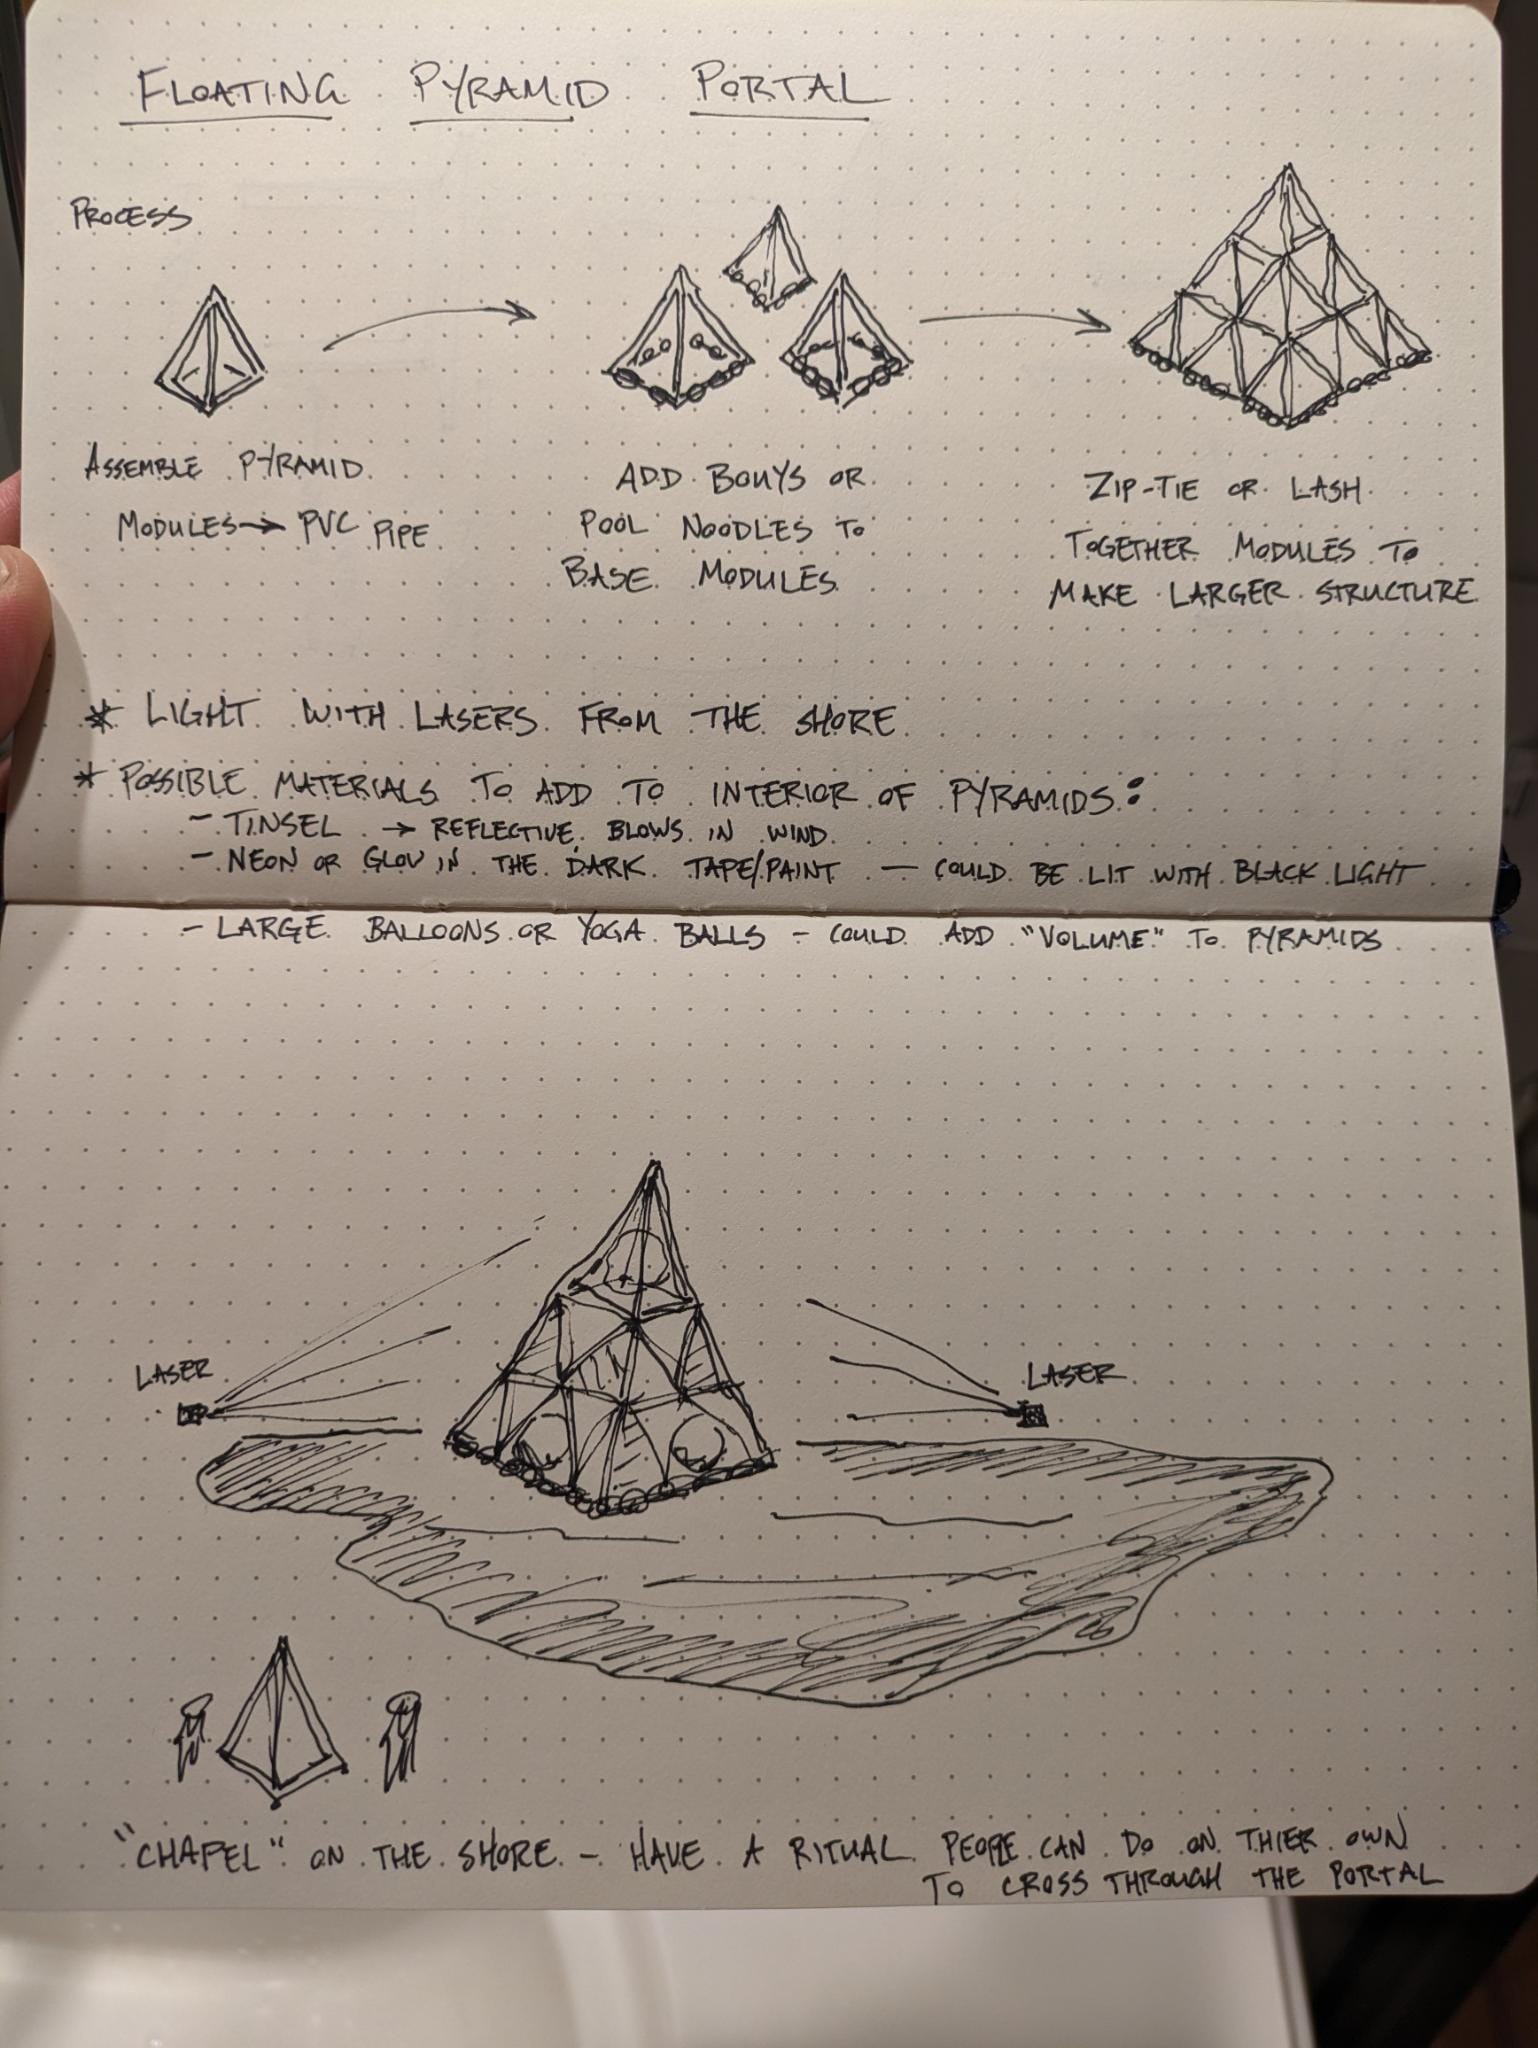 FLOATING PYRAMID PORTAL
PROCESS
ASSEMBLE PYRAMID
MODULES → PVC PIPE
ADD BOUYS OR
POOL NOODLES TO
BASE MODULES
ZIP-TIE OR LASH
TOGETHER MODULES TO
MAKE LARGER STRUCTURE
* LIGHT WITH LASERS FROM THE SHORE
* POSSIBLE MATERIALS TO ADD TO INTERIOR OF PYRAMIDS:
- TINSEL → REFLECTIVE. BLOWS IN WIND
- NEON OR GLOW IN THE DARK TAPE/PAINT - COULD BE LIT WITH BLACK LIGHT
- LARGE BALLOONS OR YOGA BALLS - COULD ADD "VOLUME" TO PYRAMIDS
LASER
LASER
"CHAPEL" ON THE SHORE - HAVE A RITUAL PEOPLE CAN DO ON THIER OWN
TO CROSS THROUGH THE PORTAL